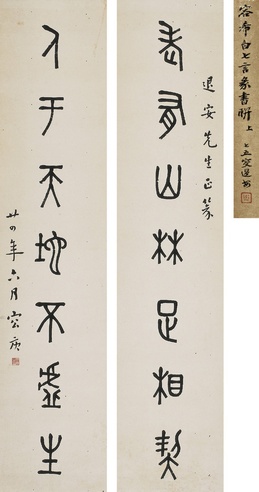 容希白七言篆書聯 上
有山林足相契
退安先生正篆
人于天地不虛生
廿四年六月容庚